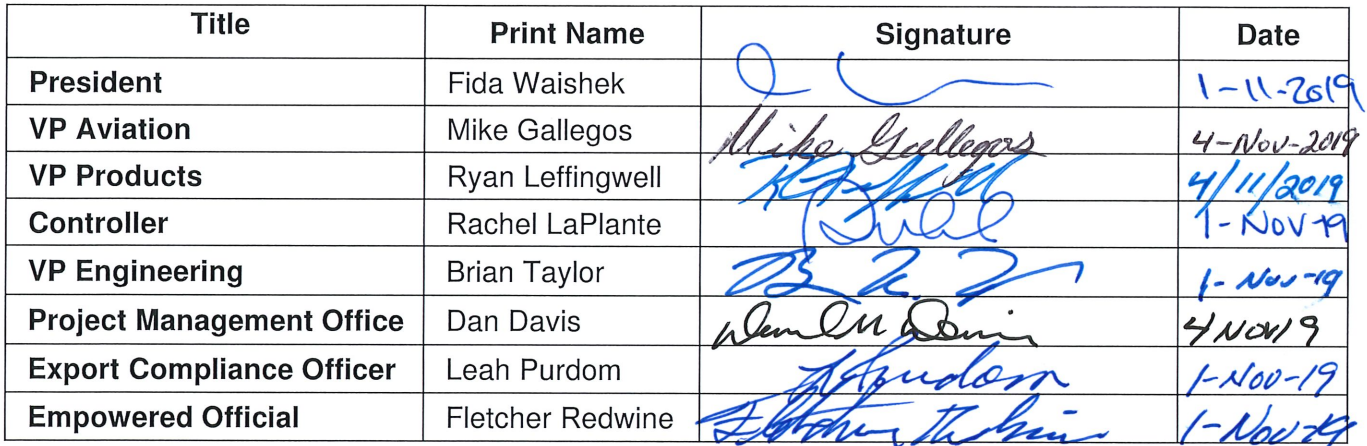 Title Print Name Signature Date
President Fida Waishek 1-11-2019
VP Aviation Mike Gallegos Mike Gallegos 4-Nov-2019
VP Products Ryan Leffingwell 4/11/2019
Controller Rachel LaPlante 1-NOV-19
VP Engineering Brian Taylor 1-Nov-19
Project Management Office Dan Davis 4 NOV 19
Export Compliance Officer Leah Purdom LPurdom 1-Nov-19
Empowered Official Fletcher Redwine Fletcher Redwine 1-Nov-19